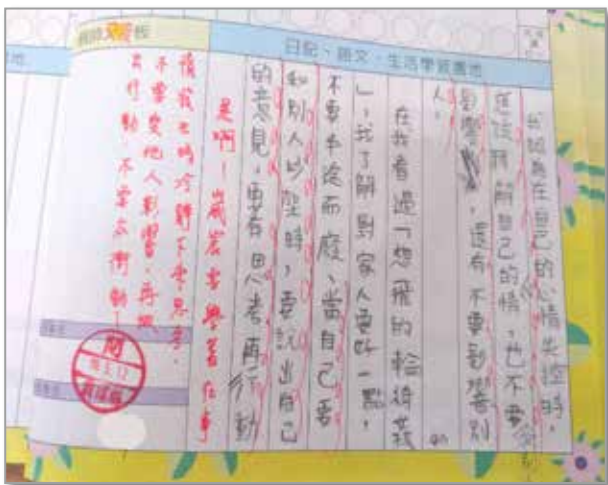 日記、語文、生活學習園地
我認為在自己的心情失控時,
應該理解自己的情,也不要
影響,還有不要影響別
人。
在我看過「想飛的輪椅
」,我了解對家人要好一點,
不要半途而廢、當自己要
和別人吵架時,要說出自己
的意見,要有思考再行動
是啊!崴宸要學著在事
情發生時冷靜下來思考,
不要受他人影響,再做
出行動,不要太衝動!